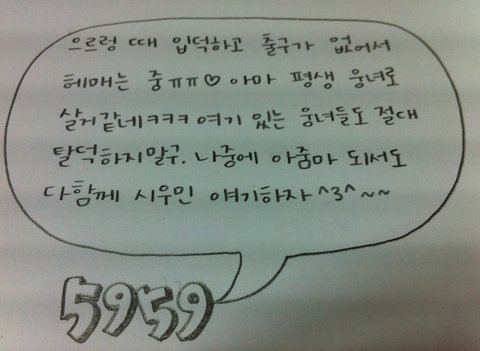 으르렁 때 입덕하고 출구가 없어서
헤매는 중ㅠㅠ♡ 아마 평생 웅녀로
살거같네ㅋㅋㅋ 여기 있는 웅녀들도 절대
탈덕하지말구. 나중에 아줌마 되서도
다함께 시우민 얘기하자 ^3^~~
5959